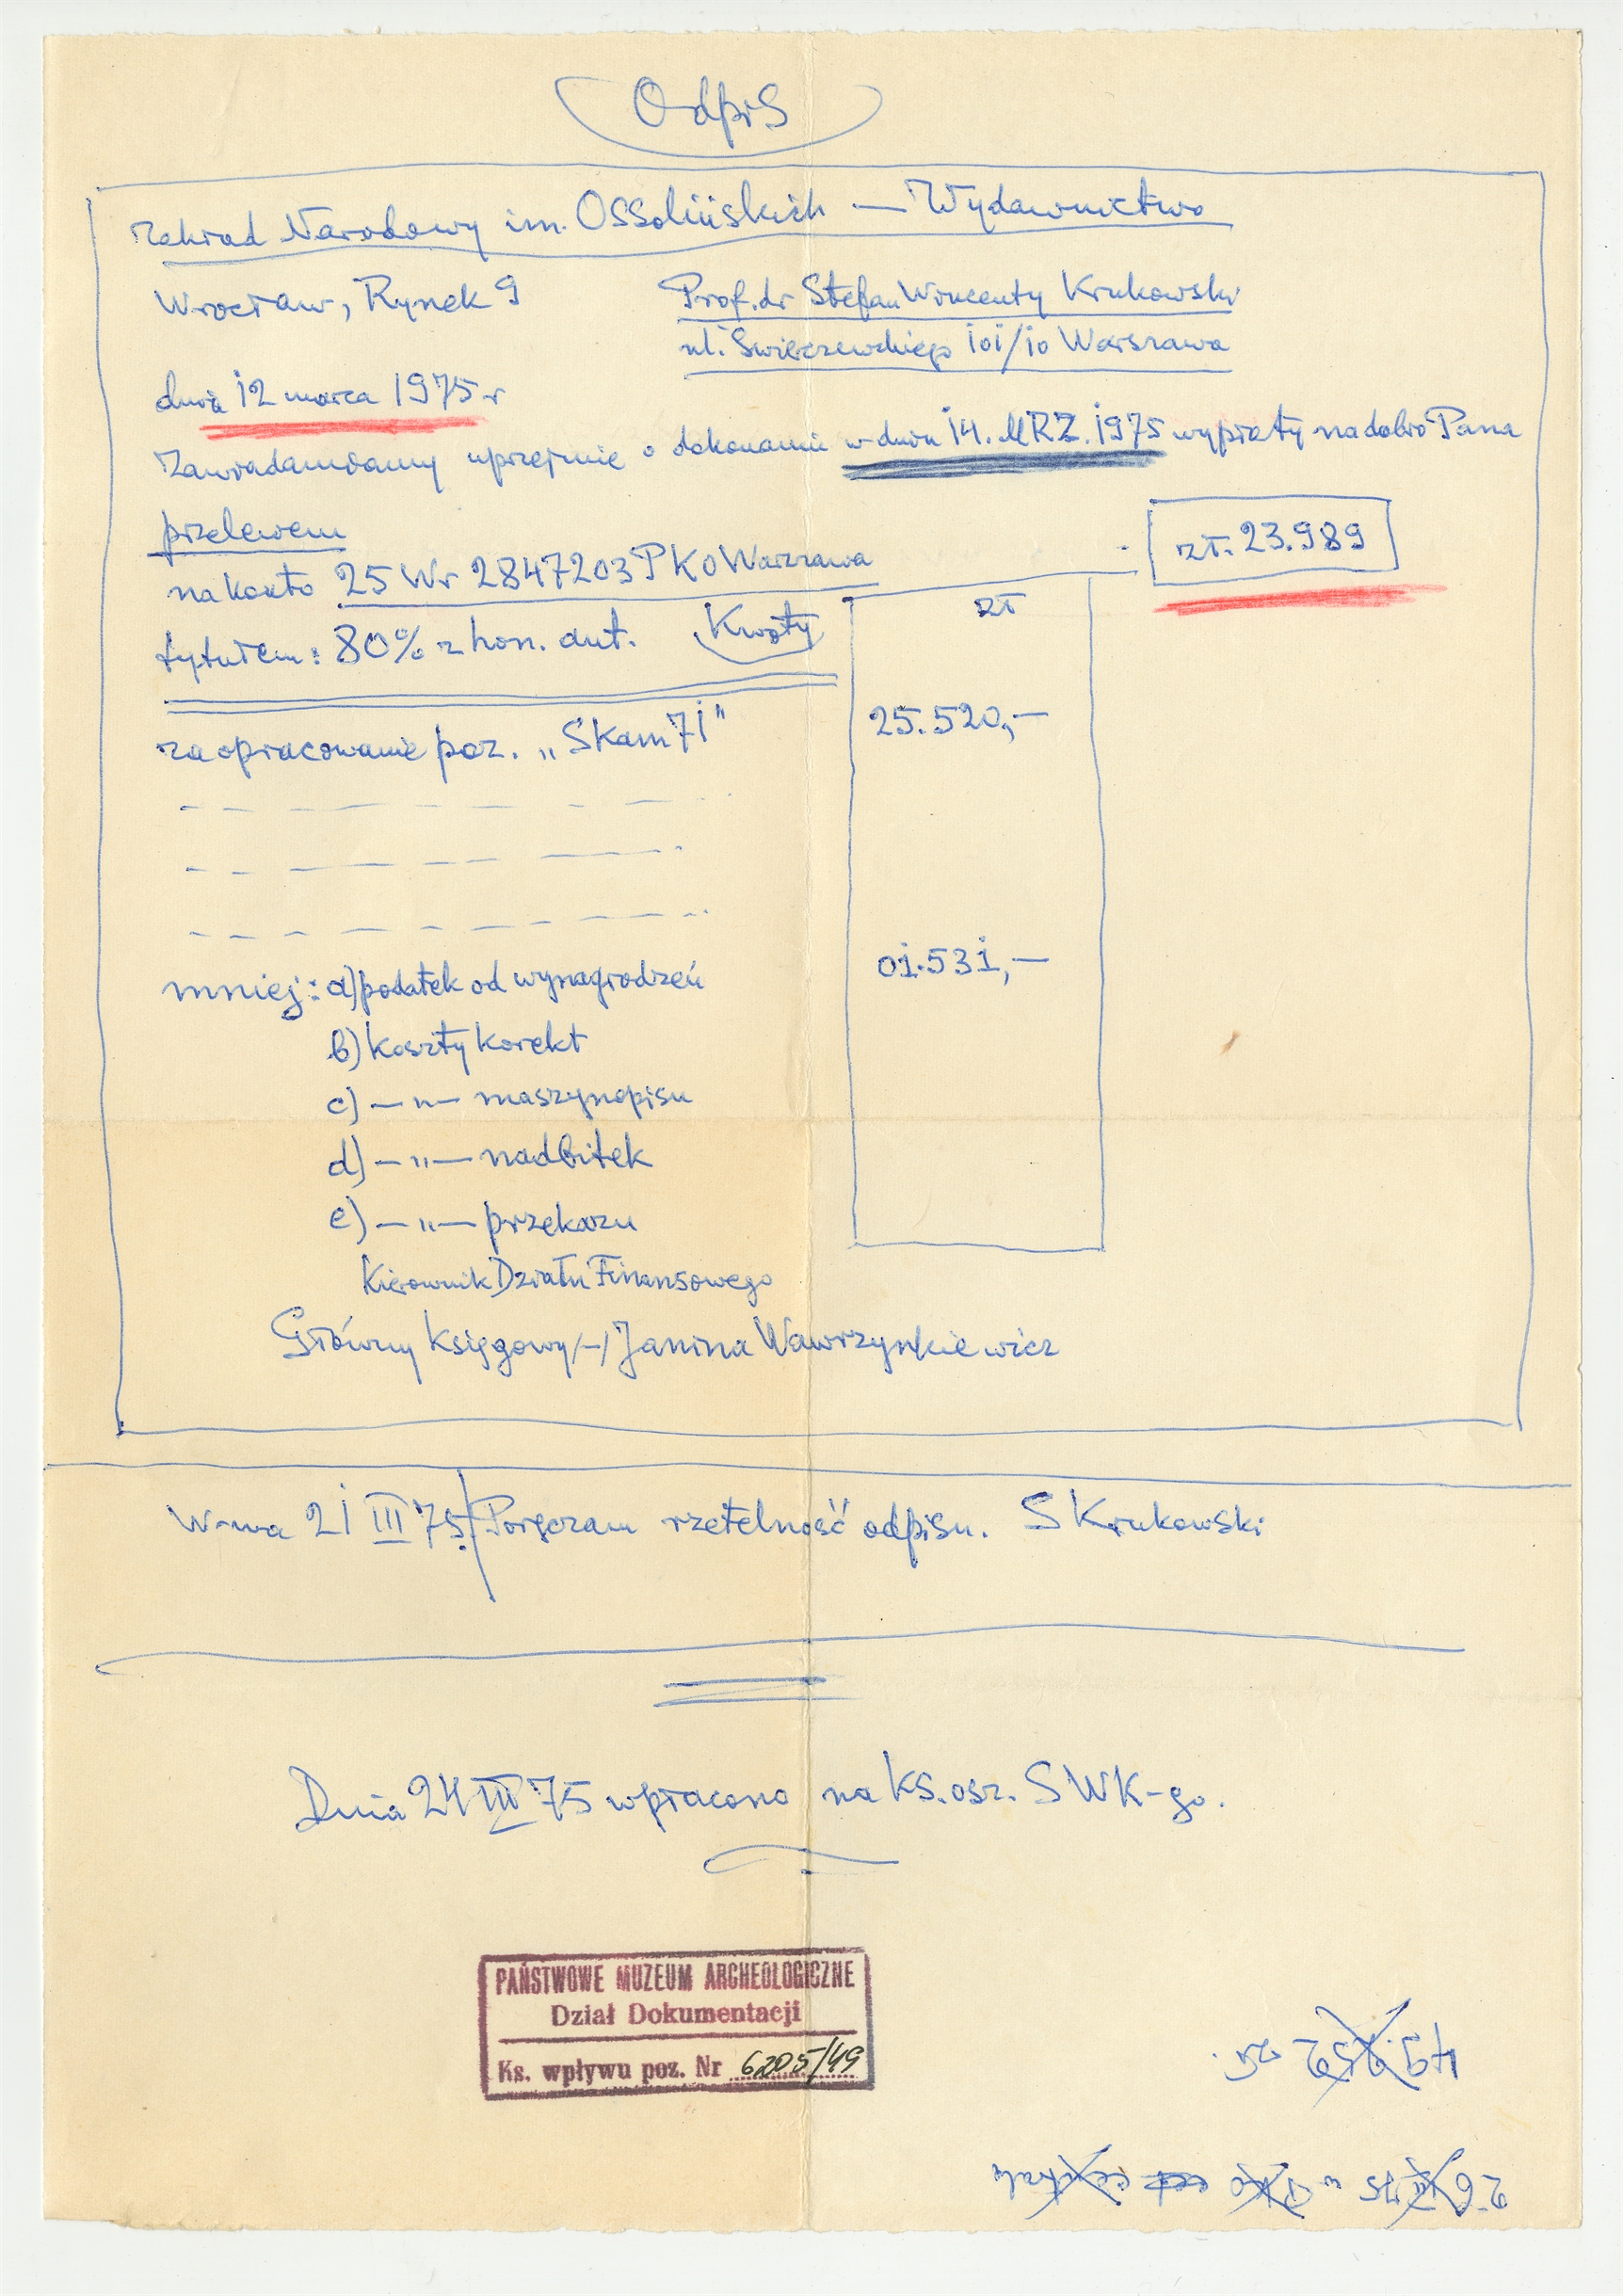 Odpis
Zakład Narodowy im. Ossolińskich — Wydawnictwo
Wrocław, Rynek 9
Prof. dr Stefan Wincenty Krukowski
ul. Świerczewskiego 101/10 Warszawa
dnia 12 marca 1975 r
Zawiadamiamy uprzejmie o dokonaniu w dniu 14. MRZ. 1975 wypłaty na dobro Pana
przelewem
zł. 23.989
na konto 25 Wr 2847203 PKO Warszawa
tytułem: 80% z hon. aut. Kwoty
zł
za opracowanie poz. „Skam 71" 25.520,—
mniej: a) podatek od wynagrodzeń 01.531,—
b) koszty korekt
c) — „ — maszynopisu
d) — „ — nadbitek
e) — „ — przekazu
Kierownik Działu Finansowego
Główny Księgowy /—/ Janina Wawrzynkiewicz
W-wa 21 III 75. Poręczam rzetelność odpisu. S Krukowski
Dnia 24 III 75 wpłacono na ks. osz. SWK-go.
PAŃSTWOWE MUZEUM ARCHEOLOGICZNE
Dział Dokumentacji
Ks. wpływu poz. Nr 6205/49